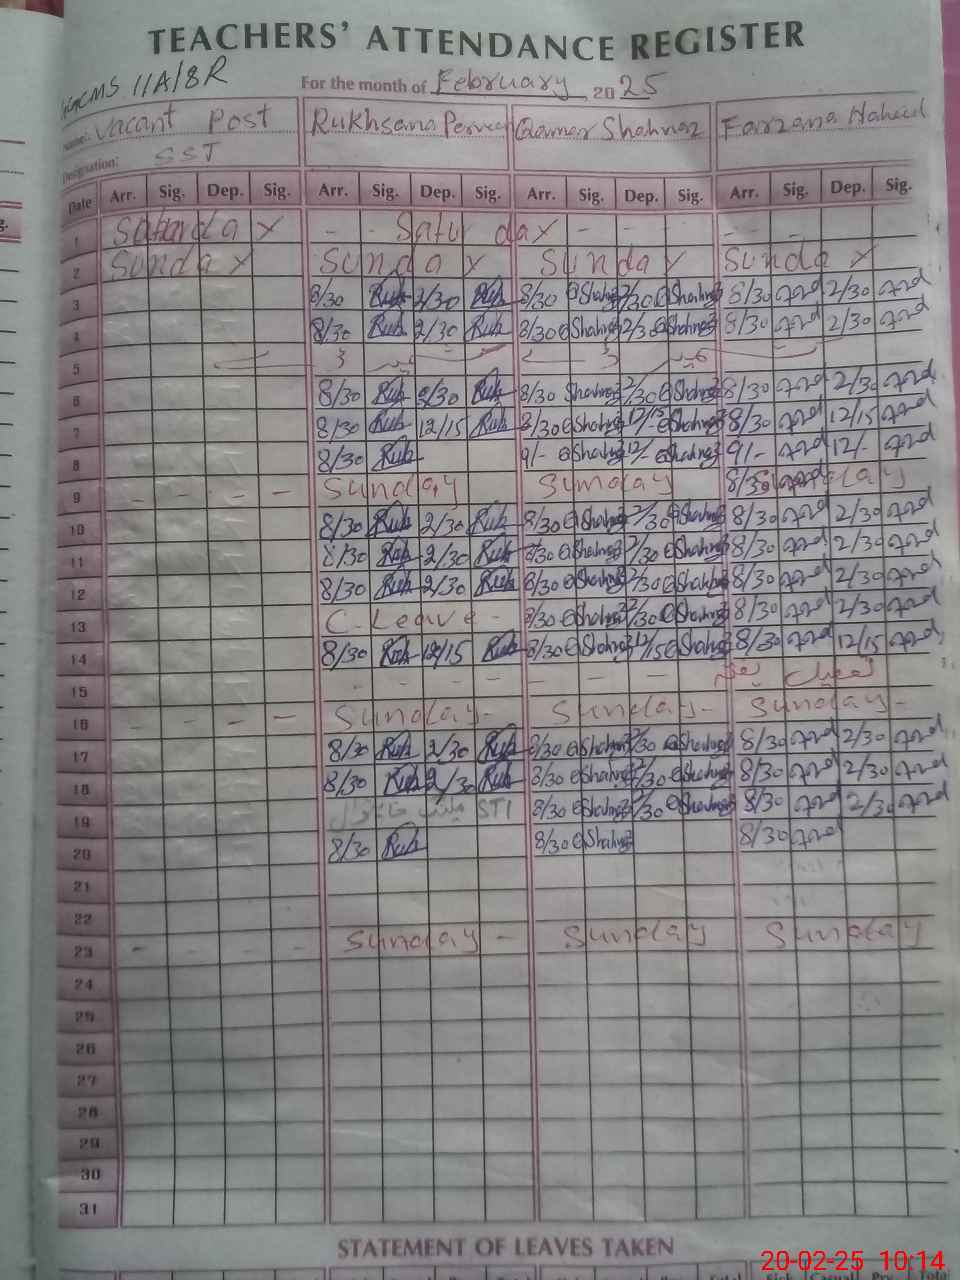 TEACHERS' ATTENDANCE REGISTER
11A/8R For the month of February, 2025
Name: Vacant Post Rukhsana Perveen Qamar Shahnaz Farzana Naheed
Designation: SST
Date Arr. Sig. Dep. Sig. Arr. Sig. Dep. Sig. Arr. Sig. Dep. Sig. Arr. Sig. Dep. Sig.
1 Saturday Saturday
2 Sunday Sunday Sunday Sunday
3 8/30 Ruk 2/30 Ruk 8/30 Shahnaz 2/30 Shahnaz 8/30 2/30
4 8/30 Ruk 2/30 Ruk 8/30 Shahnaz 2/30 Shahnaz 8/30 2/30
5
6 8/30 Ruk 2/30 Ruk 8/30 Shahnaz 2/30 Shahnaz 8/30 2/30
7 8/30 Ruk 12/15 Ruk 8/30 Shahnaz 12/15 Shahnaz 8/30 12/15
8 8/30 Ruk 9/- Shahnaz 12/- Shahnaz 9/- 12/-
9 - - - - Sunday Sunday 8/30
10 8/30 Ruk 2/30 Ruk 8/30 Shahnaz 2/30 Shahnaz 8/30 2/30
11 8/30 Ruk 2/30 Ruk 8/30 Shahnaz 2/30 Shahnaz 8/30 2/30
12 8/30 Ruk 2/30 Ruk 8/30 Shahnaz 2/30 Shahnaz 8/30 2/30
13 C. Leave - 8/30 Shahnaz 2/30 Shahnaz 8/30 2/30
14 8/30 Ruk 12/15 Ruk 8/30 Shahnaz 12/15 Shahnaz 8/30 12/15
15 - - - - - - -
16 - - - - Sunday- Sunday- Sunday-
17 8/30 Ruk 2/30 Ruk 8/30 Shahnaz 2/30 Shahnaz 8/30 2/30
18 8/30 Ruk 2/30 Ruk 8/30 Shahnaz 2/30 Shahnaz 8/30 2/30
19 STI 8/30 Shahnaz 2/30 Shahnaz 8/30 2/30
20 8/30 Ruk 8/30 Shahnaz 8/30
21
22
23 - - - - Sunday - Sunday Sunday
24
25
26
27
28
29
30
31
STATEMENT OF LEAVES TAKEN
20-02-25 10:14